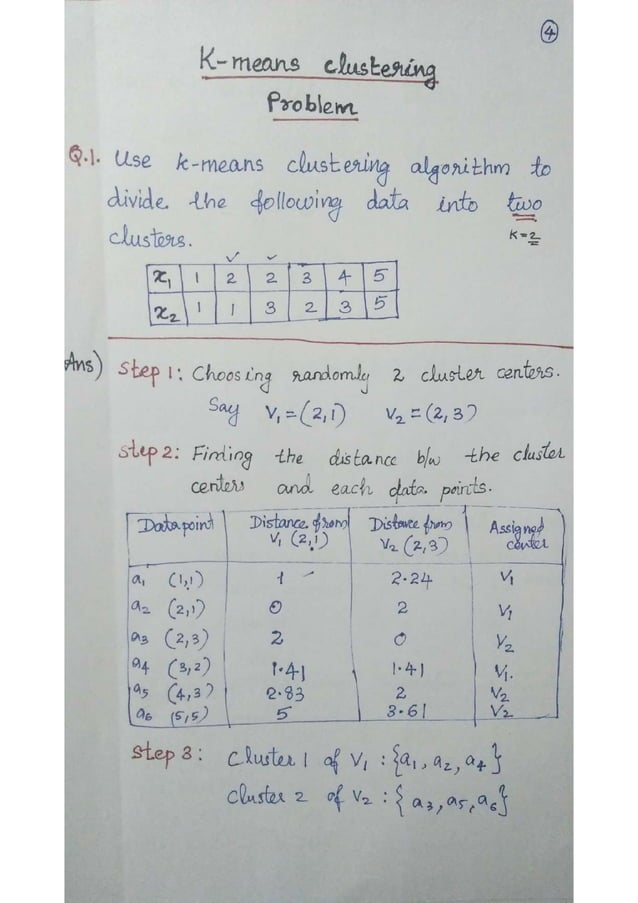 ④
K-means clustering
Problem
Q.1. Use k-means clustering algorithm to
divide the following data into two
clusters. K=2
x₁ 1 2 2 3 4 5
x₂ 1 1 3 2 3 5
Ans) Step 1: Choosing randomly 2 cluster centers.
Say V₁=(2,1) V₂=(2,3)
Step 2: Finding the distance b/w the cluster
centers and each data points.
Datapoint Distance from V₁ (2,1) Distance from V₂ (2,3) Assigned center
a₁ (1,1) 1 2.24 V₁
a₂ (2,1) 0 2 V₁
a₃ (2,3) 2 0 V₂
a₄ (3,2) 1.41 1.41 V₁.
a₅ (4,3) 2.83 2 V₂
a₆ (5,5) 5 3.61 V₂
Step 3: Cluster 1 of V₁ : {a₁, a₂, a₄}
Cluster 2 of V₂ : {a₃, a₅, a₆}